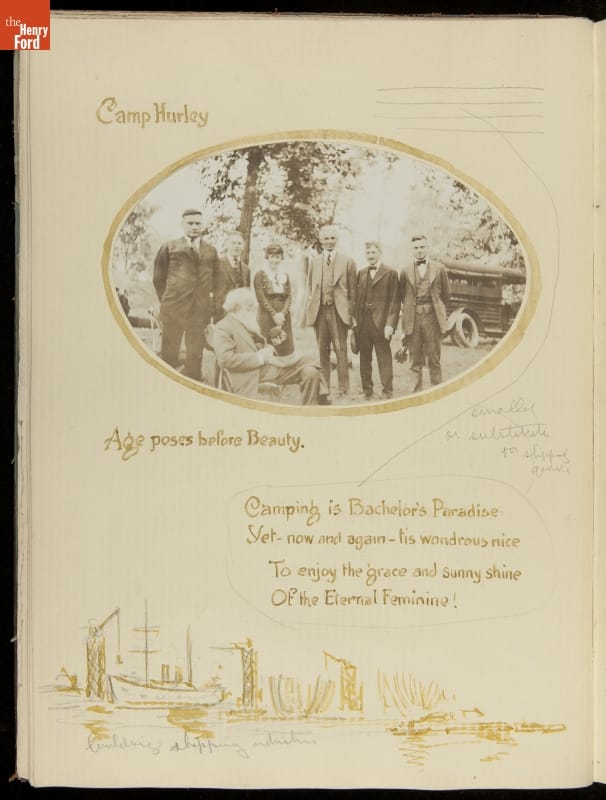 the
Henry
Ford
Camp Hurley
Age poses before Beauty.
smaller
or substitute
for shipping
Camping is Bachelor's Paradise:
Yet - now and again - tis wondrous nice
To enjoy the grace and sunny shine
Of the Eternal Feminine!
building shipping industries